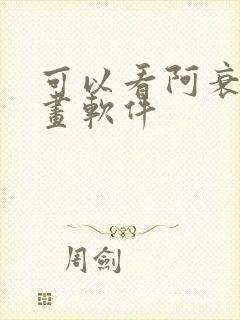 可以看阿衰
畫軟件
周劍